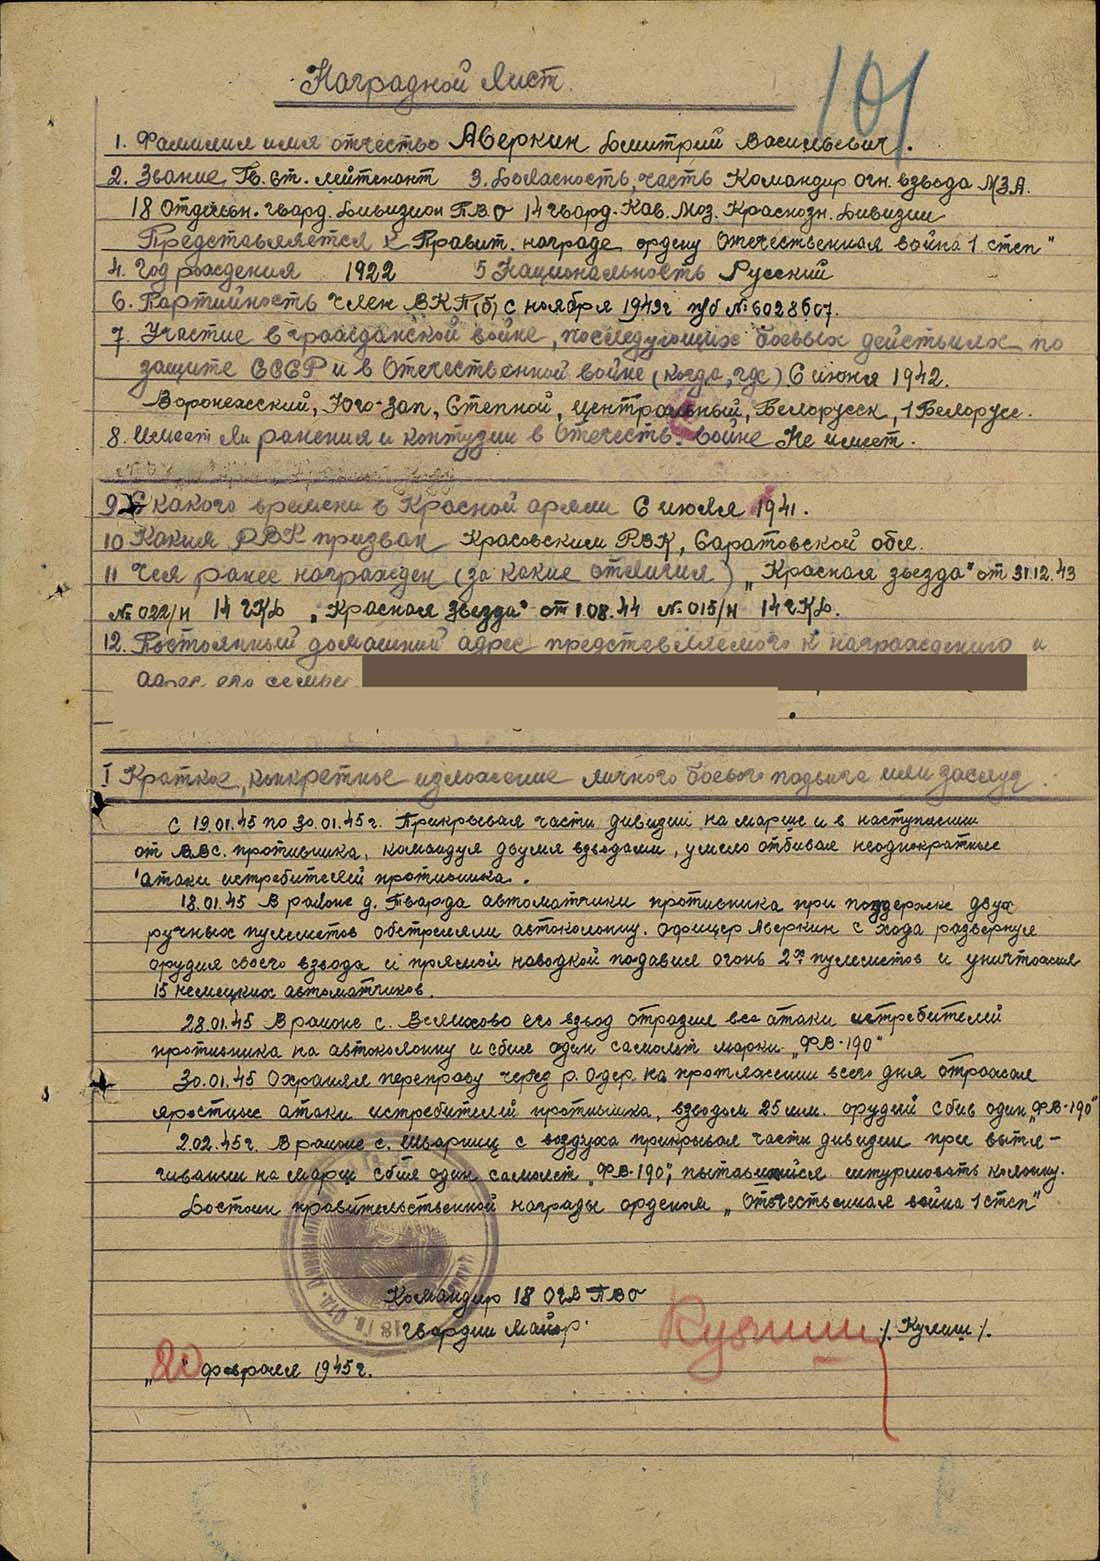 Наградной лист
101
1. Фамилия имя отчество Аверкин Дмитрий Васильевич.
2. Звание Гв. ст. лейтенант 3. Должность, часть Командир огн. взвода МЗА.
18 Отдельн. гвард. Дивизион ПВО 14 гвард. Кав. Моз. Краснозн. Дивизии
Представляется к Правит. награде ордену Отечественная война 1 степ"
4. Год рождения 1922 5 Национальность Русский
6. Партийность член ВКП(б) с ноября 1942г п/б № 6028607.
7. Участие в гражданской войне, последующих боевых действиях по
защите СССР и в Отечественной войне (когда, где) С июня 1942.
Воронежский, Юго-зап, Степной, Центральный, Белорусск, 1 Белорусс.
8. Имеет ли ранения и контузии в Отечеств. войне Не имеет.
9 С какого времени в Красной армии С июля 1941.
10 Каким РВК призван Красовским РВК, Саратовской обл.
11 Чем ранее награжден (за какие отличия) „Красная звезда" от 31.12.43
№ 022/н 14 гКд „Красная звезда" от 1.08.44 № 015/н 14 гКд.
12. Постоянный домашний адрес представляемого к награждению и
адрес его семьи
I Краткое, конкретное изложение личного боевого подвига или заслуг.
С 19.01.45 по 30.01.45г. Прикрывая части дивизии на марше и в наступлении
от ВВС. противника, командуя двумя взводами, умело отбивая неоднократные
атаки истребителей противника.
18.01.45 В районе д. Тварда автоматчики противника при поддержке двух
ручных пулеметов обстреляли автоколонну. Офицер Аверкин с хода развернул
орудия своего взвода и прямой наводкой подавил огонь 2х пулеметов и уничтожил
15 немецких автоматчиков.
28.01.45 В районе с. Велихово его взвод отразил все атаки истребителей
противника на автоколонну и сбил один самолет марки „ФВ-190"
30.01.45 Охранял переправу через р. Одер, на протяжении всего дня отражал
яростные атаки истребителей противника, взводом 25 мм. орудий сбив один „ФВ-190"
2.02.45г. В районе с. Шварниц с воздуха прикрывая части дивизии при вытя-
гивании на марш сбил один самолет „ФВ-190", пытавшийся штурмовать колонну.
Достоин правительственной награды орденом „Отечественная война 1 степ"
Командир 18 ОГД ПВО
Гвардии Майор.
Кулиш
/. Кулиш /.
„20" февраля 1945г.
18 Гв. ОТД.